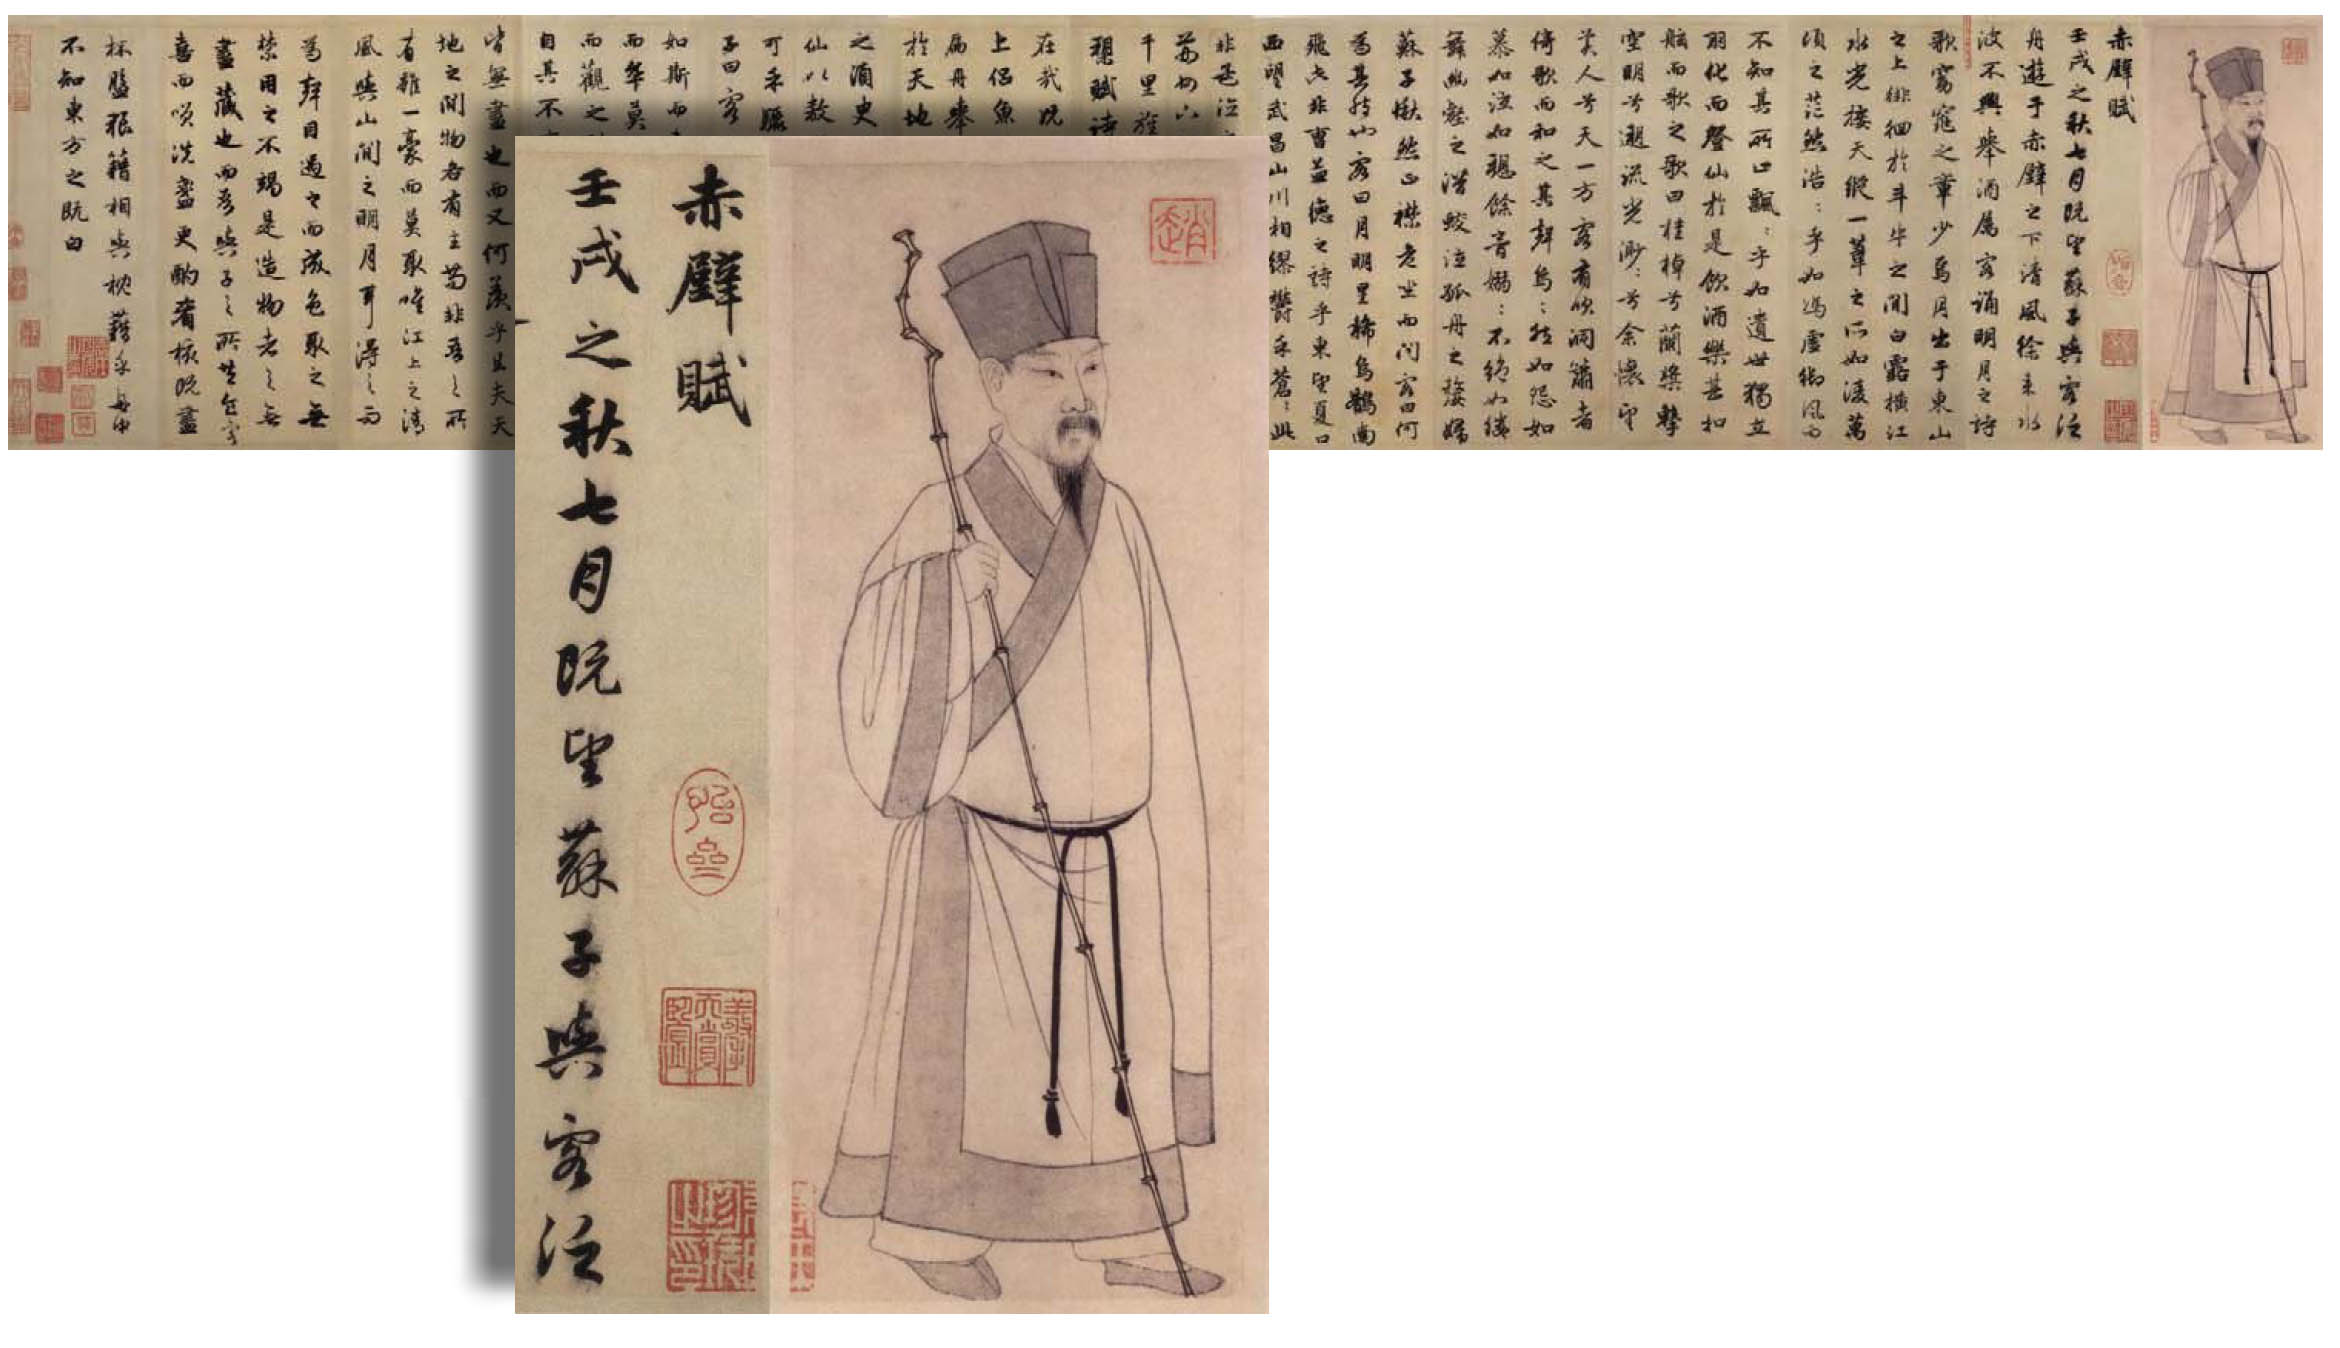 赤壁賦
壬戌之秋七月既望蘇子與客泛
舟遊于赤壁之下清風徐來水
波不興舉酒屬客誦明月之詩
歌窈窕之章少焉月出于東山
之上徘徊於斗牛之間白露橫江
水光接天縱一葦之所如淩萬
頃之茫然浩:乎如馮虛御風而
不知其所止飄:乎如遺世獨立
羽化而登仙於是飲酒樂甚扣
舷而歌之歌曰桂棹兮蘭槳擊
空明兮遡流光渺:兮余懷望
美人兮天一方客有吹洞簫者
倚歌而和之其聲烏:然如怨如
慕如泣如聽餘音嫋:不絕如縷
舞幽壑之潛蛟泣孤舟之嫠婦
蘇子愀然正襟危坐而問客曰何
為其然也客曰月明星稀烏鵲南
飛此非曹孟德之詩乎東望夏口
西望武昌山川相繆鬱乎蒼:此
非
千里旌
賦詩
在哉況
上侶魚
扁舟舉
於天地
之須臾
仙以敖
可乎驟
子曰客
如斯而
而卒莫
而觀之
自其不
皆無盡也而又何羨乎且夫天
地之間物各有主苟非吾之所
有雖一豪而莫取唯江上之清
風與山間之明月耳得之而
為聲目遇之而成色取之無
禁用之不竭是造物者之無
盡藏也而吾與子之所共食客
喜而笑洗盞更酌肴核既盡
杯盤狼籍相與枕藉乎舟中
不知東方之既白
趙
赤壁賦
壬戌之秋七月既望蘇子與客泛